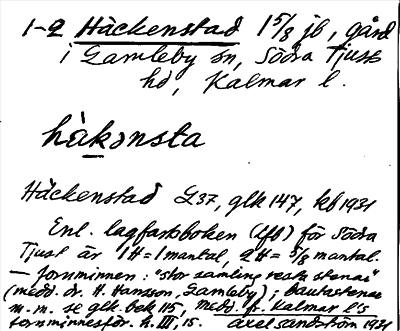 1-2 Häckenstad 1 5/8 jb, gård
i Gamleby sn, Södra Tjusts
hd, Kalmar l.
hàkənsta
Häckenstad L37, glk 147, kb 1931
Enl. lagfartsboken (lfb) för Södra
Tjust är 1H=1 mantal, 2H=5/8 mantal.
— fornminnen: "stor samling resta stenar"
(medd. dr. H. Hansson, Gamleby); bautastenar
m.m. se glk. bek 115, medd. fr. Kalmar l:s
fornminnesför. h. III, 15. Axel Sandström 1931